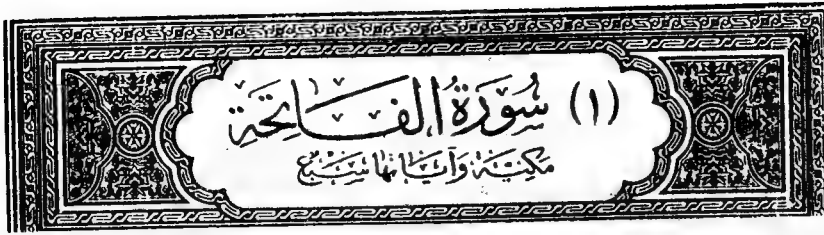 (١) سُورَةُ الفَاتِحَة
مَكِيَّة وَآيَاتهَا سَبْع